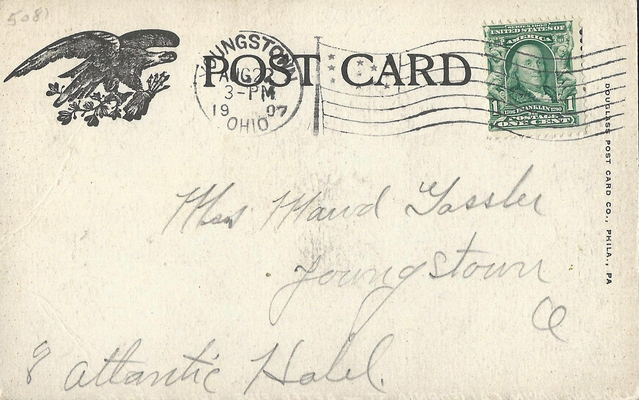 5081
POST CARD
YOUNGSTOWN
AUG 2
3-PM
1907
OHIO
UNITED STATES OF
AMERICA
1 1
FRANKLIN
POSTAGE
ONE CENT
DOUGLASS POST CARD CO., PHILA., PA
Miss Maud Gassler
Youngstown
O
Atlantic Hotel.